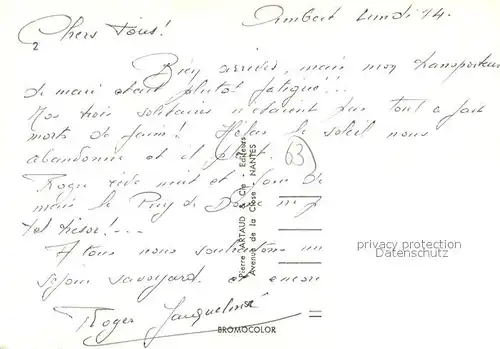 Ambert Lundi 14.
2 Chers Tous!
Bien arrivés, mais mon transporteur
de mari était plutôt fatigué!...
Nos trois solitaires n'étaient pas tout à fait
morts de faim! Hélas le soleil nous
abandonne et il pleut. 63
Roger rêve nuit et jour de
mais le Puy de Dôme
tel trésor!...
A tous nous souhaitons un
séjour savoyard et encore
Roger Jacqueline
Pierre ARTAUD & Cie Editeurs
Avenue de la Close NANTES
BROMOCOLOR
privacy protection
Datenschutz